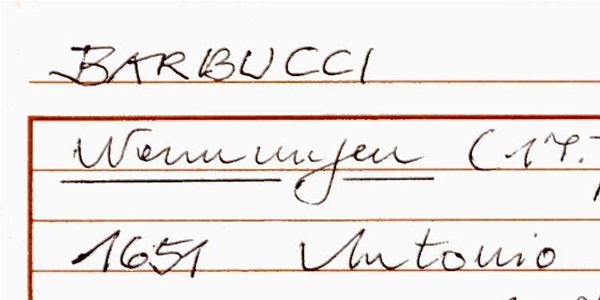 BARBUCCI
Wemmingen (17.
1651 Antonio